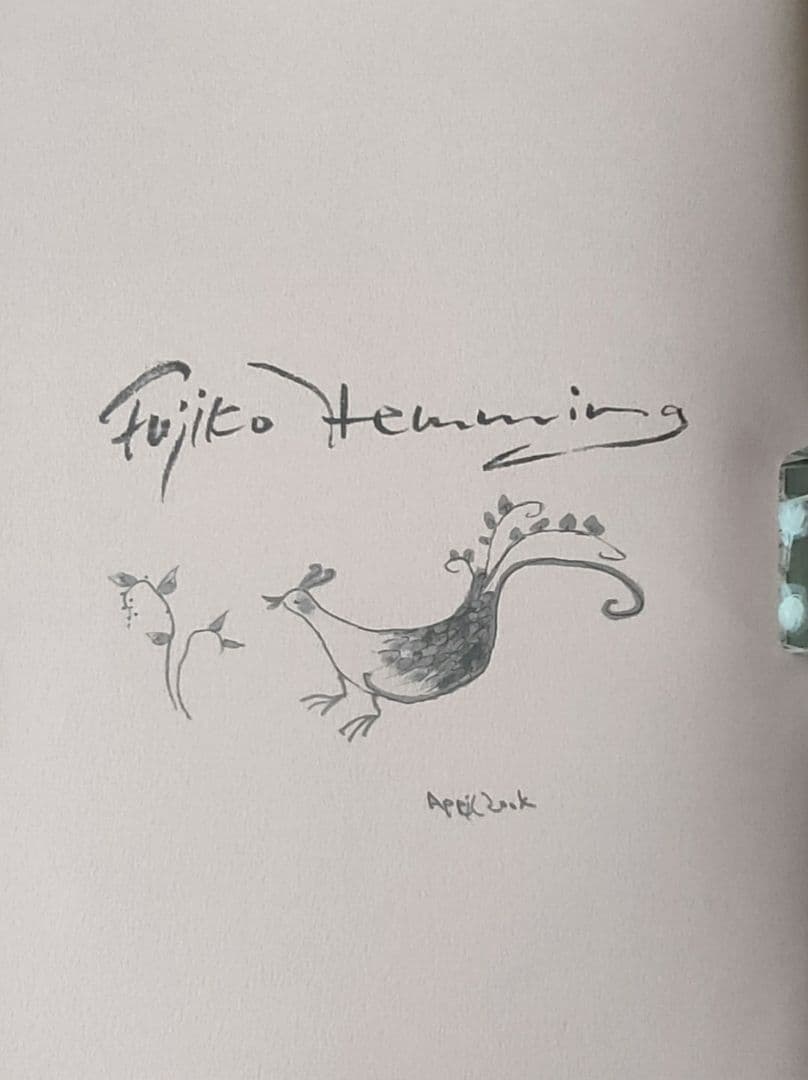 Fujiko Hemming
April